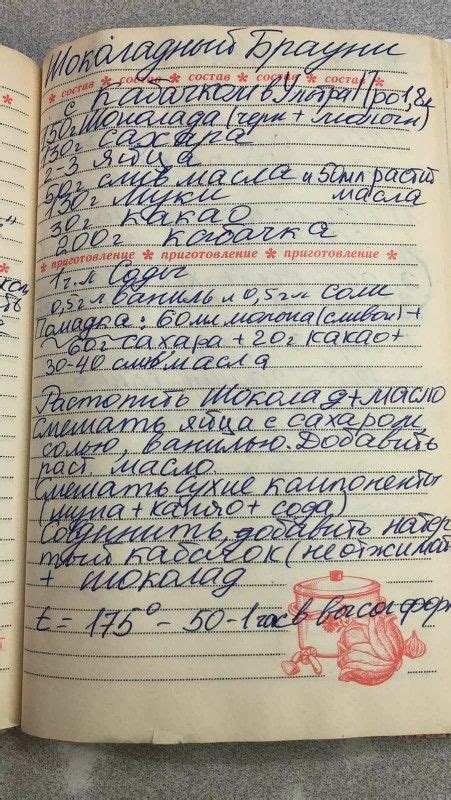 Шоколадный Брауни
состав * состав * состав * состав * состав
с кабачком в
150г Шоколада (черн + молочн)
150г сахара
2-3 яйца
50г слив масла и 50мл растит
масла
130г муки
30г какао
200г кабачка
приготовление * приготовление * приготовление
1 г.л соды
0,5г л ваниль и 0,5г л соли
Помадка: 60мл молока (сливок) +
60г сахара + 20г какао +
30-40 слив масла
Растопить Шоколад + масло
Смешать яйца с сахаром,
солью, ванилью. Добавить
раст масло
Смешать сухие компоненты
(мука + какао + сода)
Соединить, добавить натёр
тый кабачок (не отжимат
+ шоколад
t = 175° - 50 - 1 час в высок форм